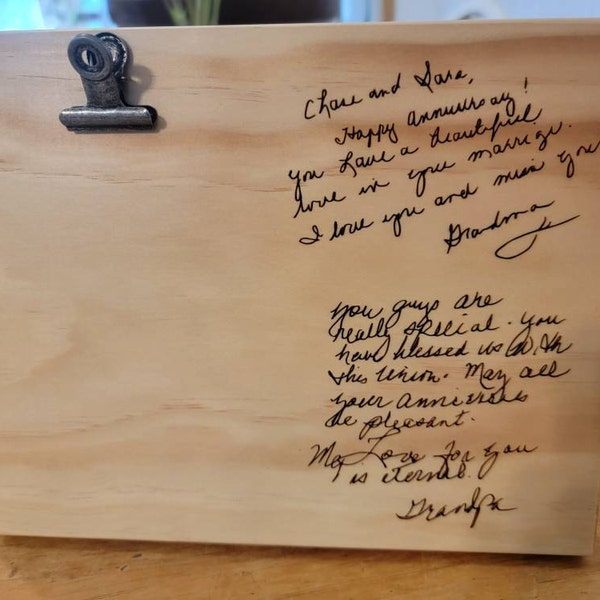 Chase and Sara,
Happy Anniversay!
you have a beautiful
love in your marrige.
I love you and miss you
Grandma
you guys are
really special. you
have blessed us with
this Union. May all
your anniversies
be pleasant.
My Love for you
is eternal.
Grandpa